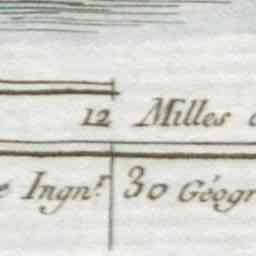 12 Milles
e Ingn.r 30 Géogr